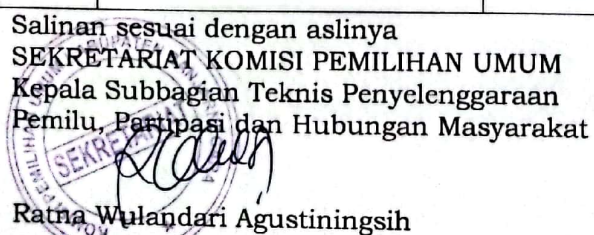 Salinan sesuai dengan aslinya
SEKRETARIAT KOMISI PEMILIHAN UMUM
Kepala Subbagian Teknis Penyelenggaraan
Pemilu, Partipasi dan Hubungan Masyarakat
SEKRETARIAT
Ratna Wulandari Agustiningsih